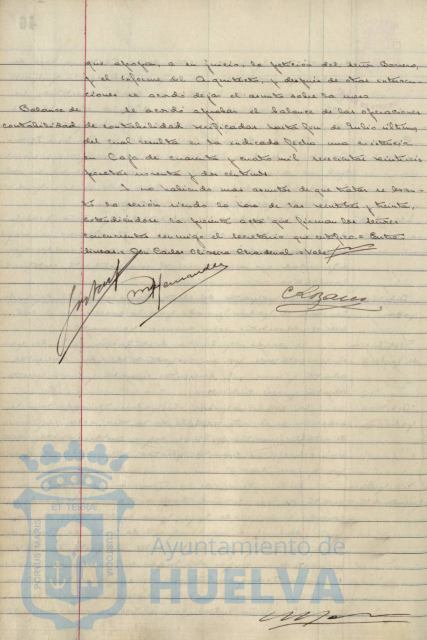 que apoyan, a su juicio, la petición del señor Borrero,
y el informe del Arquitecto, y después de otras interven-
ciones se acordó dejar el asunto sobre la mesa
Balance de contabilidad
Se acordó aprobar el balance de las operaciones
de contabilidad verificadas hasta fin de Julio último
del cual resulta en la indicada fecha una existencia
en Caja de cuarenta y cuatro mil seiscientas veintiseis
pesetas noventa y dos céntimos.
Y no habiendo mas asuntos de que tratar se levan-
tó la sesión siendo la hora de las veintidos y treinta,
extendiéndose la presente acta que firman los señores
concurrentes conmigo el Secretario que certifico = Entre
lineas = Don Carlos Oliveira = Vale
M Hernandez
C Lozano
PORTUS MARIS
ET TERRAE
CUSTODIA
Ayuntamiento de
HUELVA